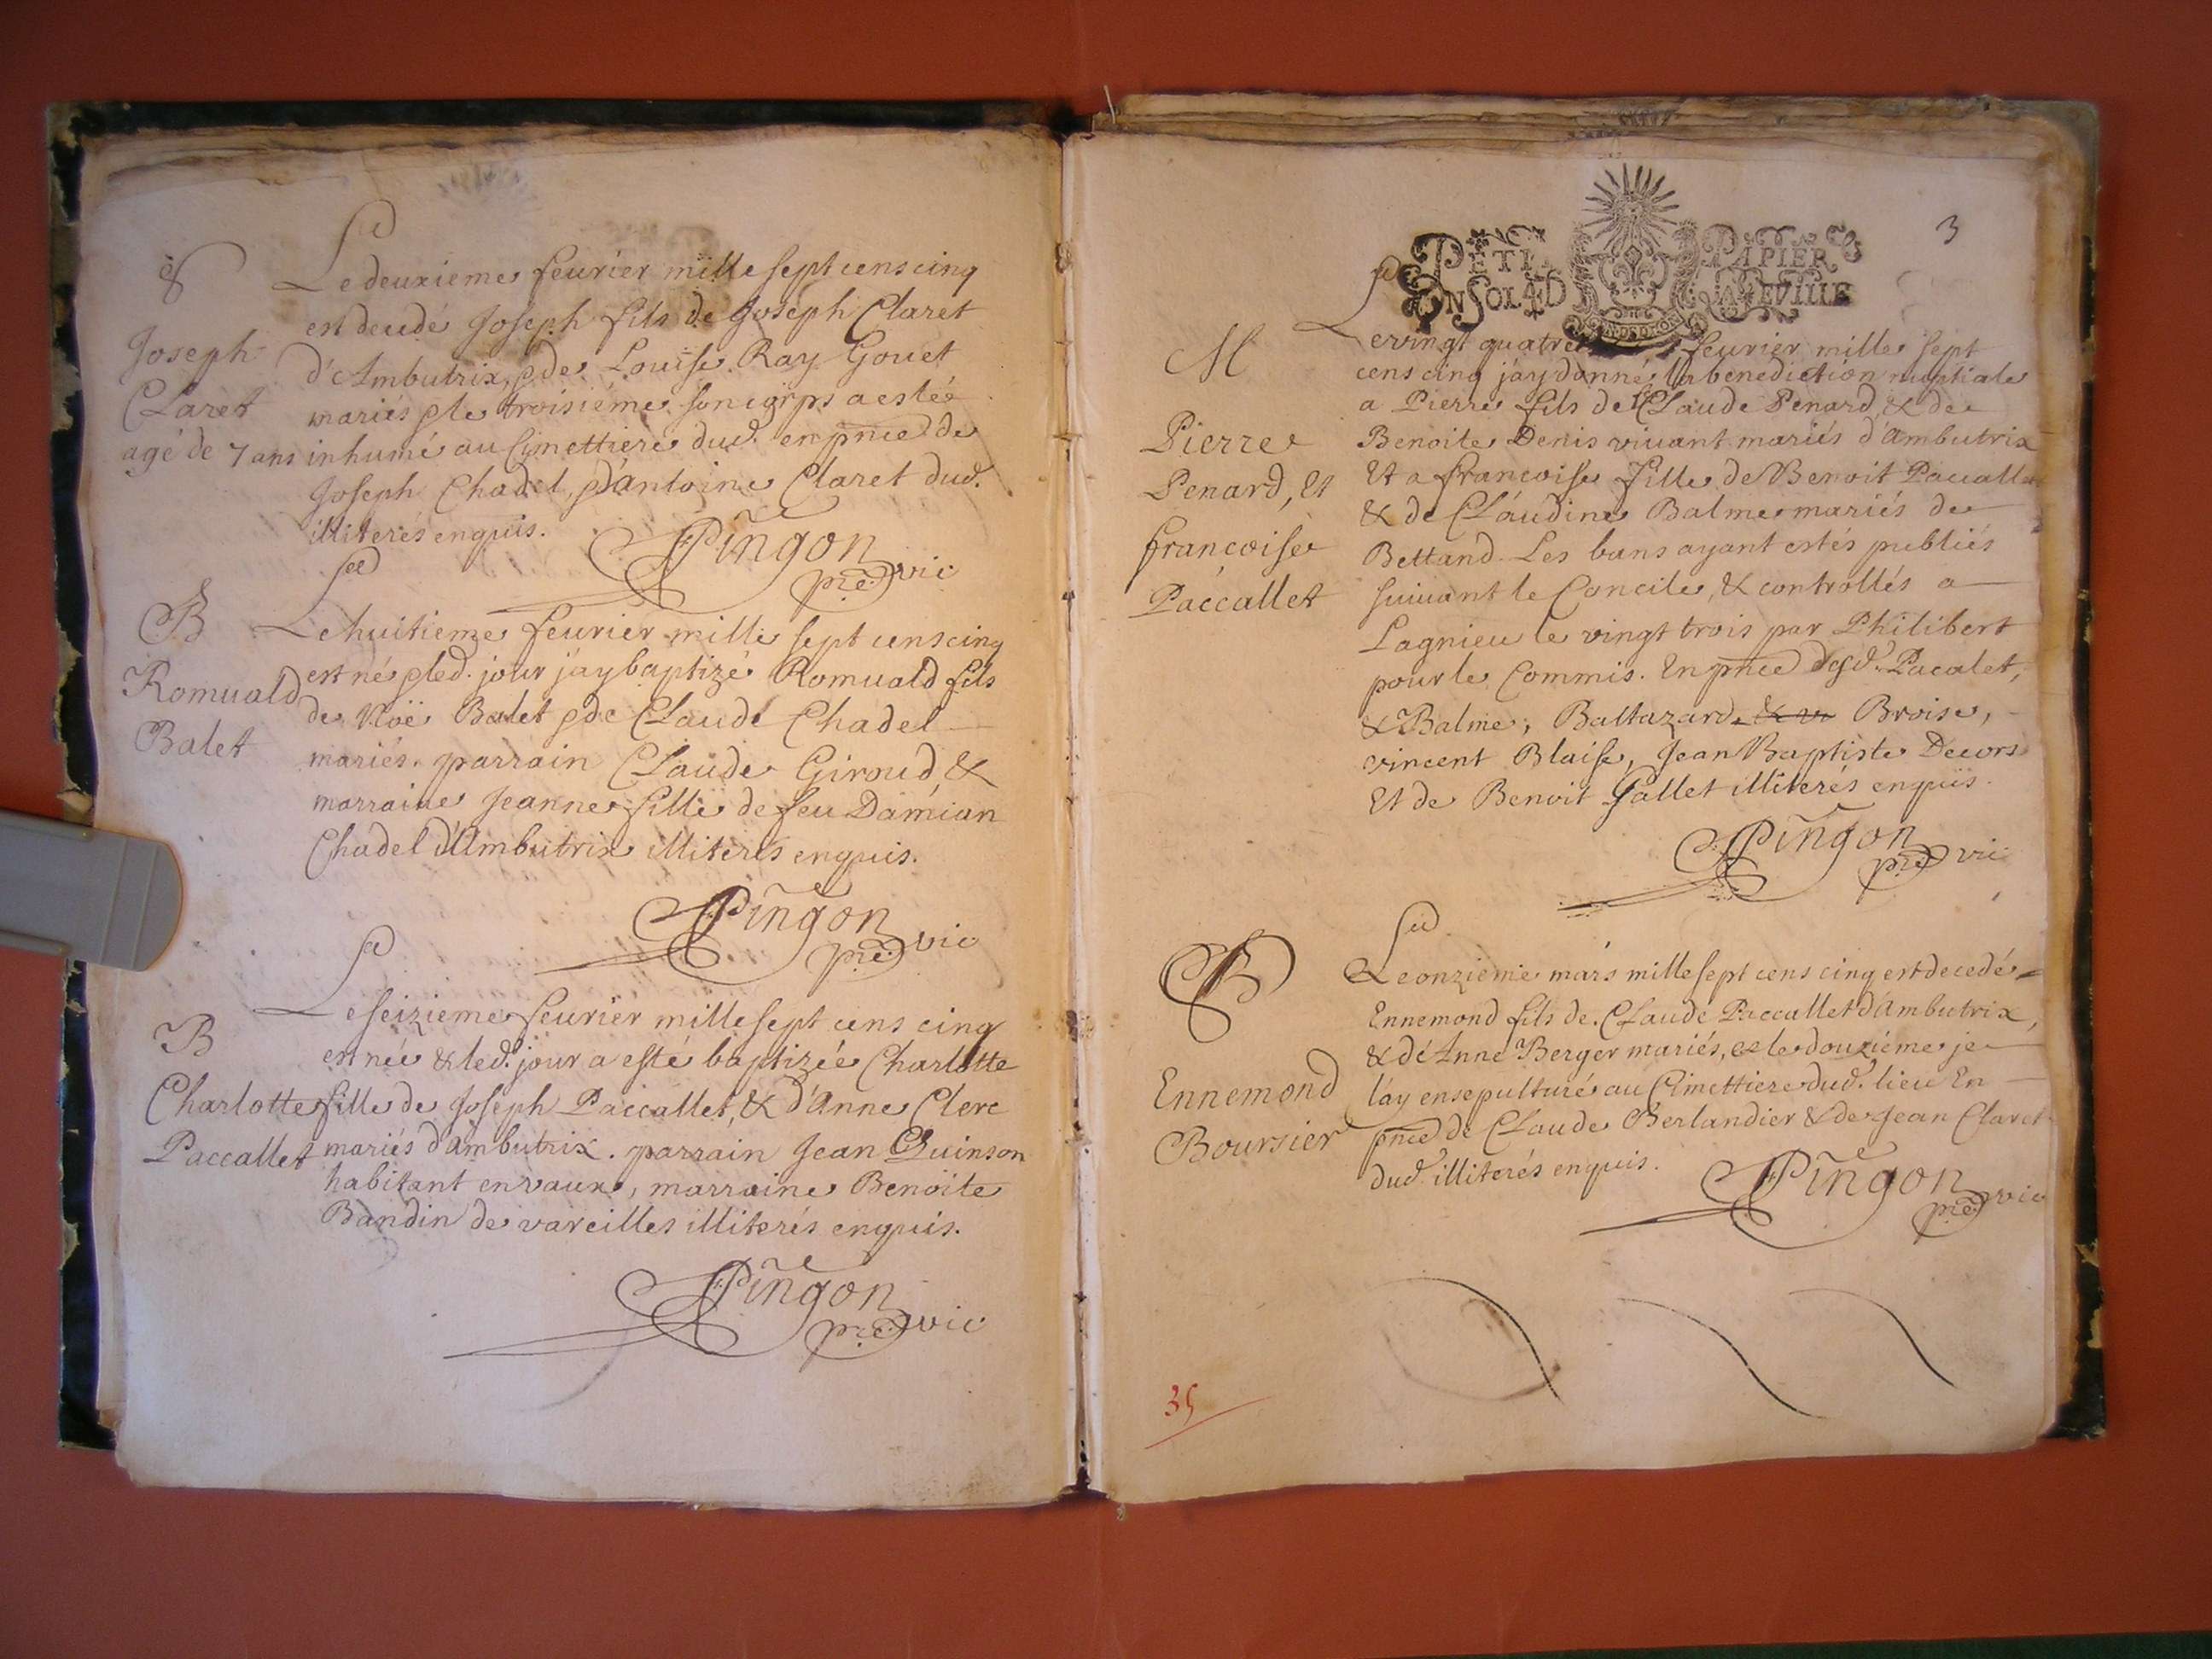 Joseph
Claret
agé de 7 ans
Le deuxieme feurier mille sept cens cinq
est decedé Joseph fils de Joseph Claret
d'Ambutrix, & de Louise Ray Gouet
mariés & le troisième son corps a esté
inhumé au Cimettiere dud. en pnce de
Joseph Chadel, & d'antoine Claret dud.
illiterés enquis.
Pingon
pre vic
B
Romuald
Balet
Le huitieme feurier mille sept cens cinq
est né & led. jour j'ay baptizé Romuald fils
de Noë Balet & de Claude Chadel
mariés. parrain Claude Giroud &
marraine Jeanne fille de feu Damian
Chadel d'Ambutrix illiterés enquis.
Pingon
pre vic
B
Charlotte
Paccallet
Le seizieme feurier mille sept cens cinq
est née & led. jour a esté baptizée Charlotte
fille de Joseph Paccallet, & d'Anne Clerc
mariés d'Ambutrix. parrain Jean Quinson
habitant en vaux, marraine Benoite
Bandin de vareilles illiterés enquis.
Pingon
pre vic
3
PETIT PAPIER
UN SOL 4 D LA FEVILLE
M
Pierre
Penard, Et
francoise
Paccallet
Le vingt quatre feurier mille sept
cens cinq j'ay donné la benediction nuptiale
a Pierre fils de Claude Penard & de
Benoite Denis viuant mariés d'Ambutrix
Et a francoise fille de Benoit Paccallet
& de Claudine Balme mariés de
Bettand. Les bans ayant estés publiés
suiuant le Concile, & controllés a
Lagnieu le vingt trois par Philibert
pour le Commis. En pnce desd. Pacalet,
& Balme, Baltazard Broise,
vincent Blaise, Jean Baptiste Decors
Et de Benoit Gallet illiterés enquis.
Pingon
pre vic
Ennemond
Boursier
Le onzieme mars mille sept cens cinq est decedé
Ennemond fils de Claude Paccallet d'Ambutrix,
& de Anne Berger mariés, & le douzième je
l'ay ensepulturé au Cimettiere dud. lieu En
pnce de Claude Berlandier & de Jean Claret
dud. illiterés enquis.
Pingon
pre vic
35